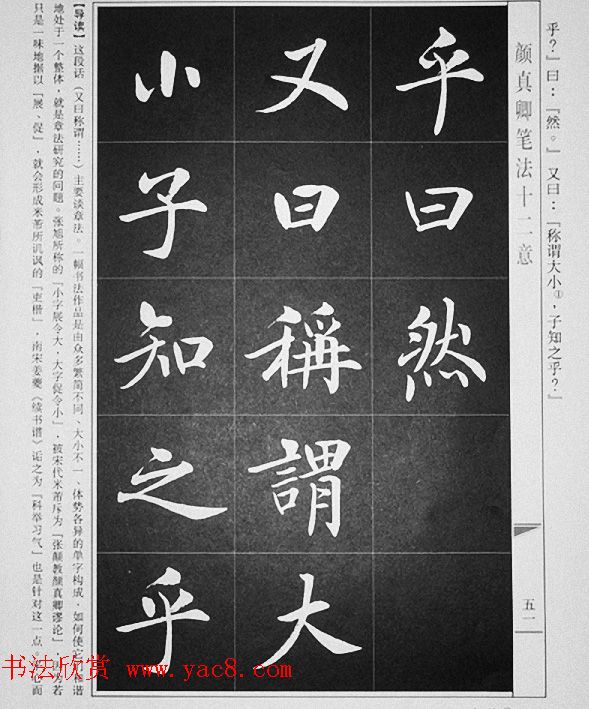 乎？』曰：『然。』又曰：『称谓大小①，子知之乎？』
颜真卿笔法十二意
五一
乎曰然
又曰稱謂大
小子知之乎
【导读】这段话（又曰称谓……）主要谈章法。一幅书法作品是由众多繁简不同、大小不一、体势各异的单字构成，如何使它和谐
地处于一个整体，就是章法研究的问题。张旭所称的『小字展令大，大字促令小』，被宋代米芾斥为『张颠教颜真卿谬论』，为若
只是一味地据以『展、促』，就会形成米芾所讥讽的『吏楷』，南宋姜夔《续书谱》诟之为『科举习气』也是针对这一点。心而
书法欣赏 www.yac8.com